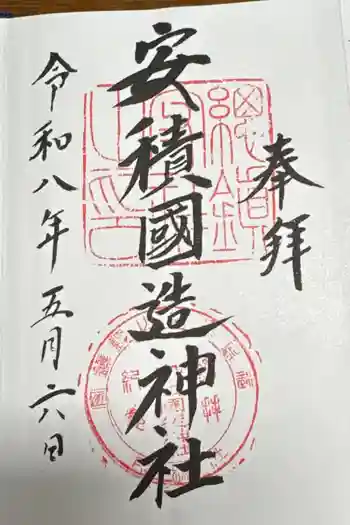 奉拝
安積國造神社
令和八年五月六日